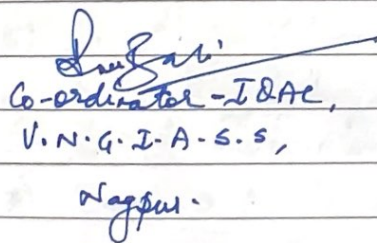 Co-ordinator - IQAC,
V.N.G.I.A.S.S,
Nagpur.